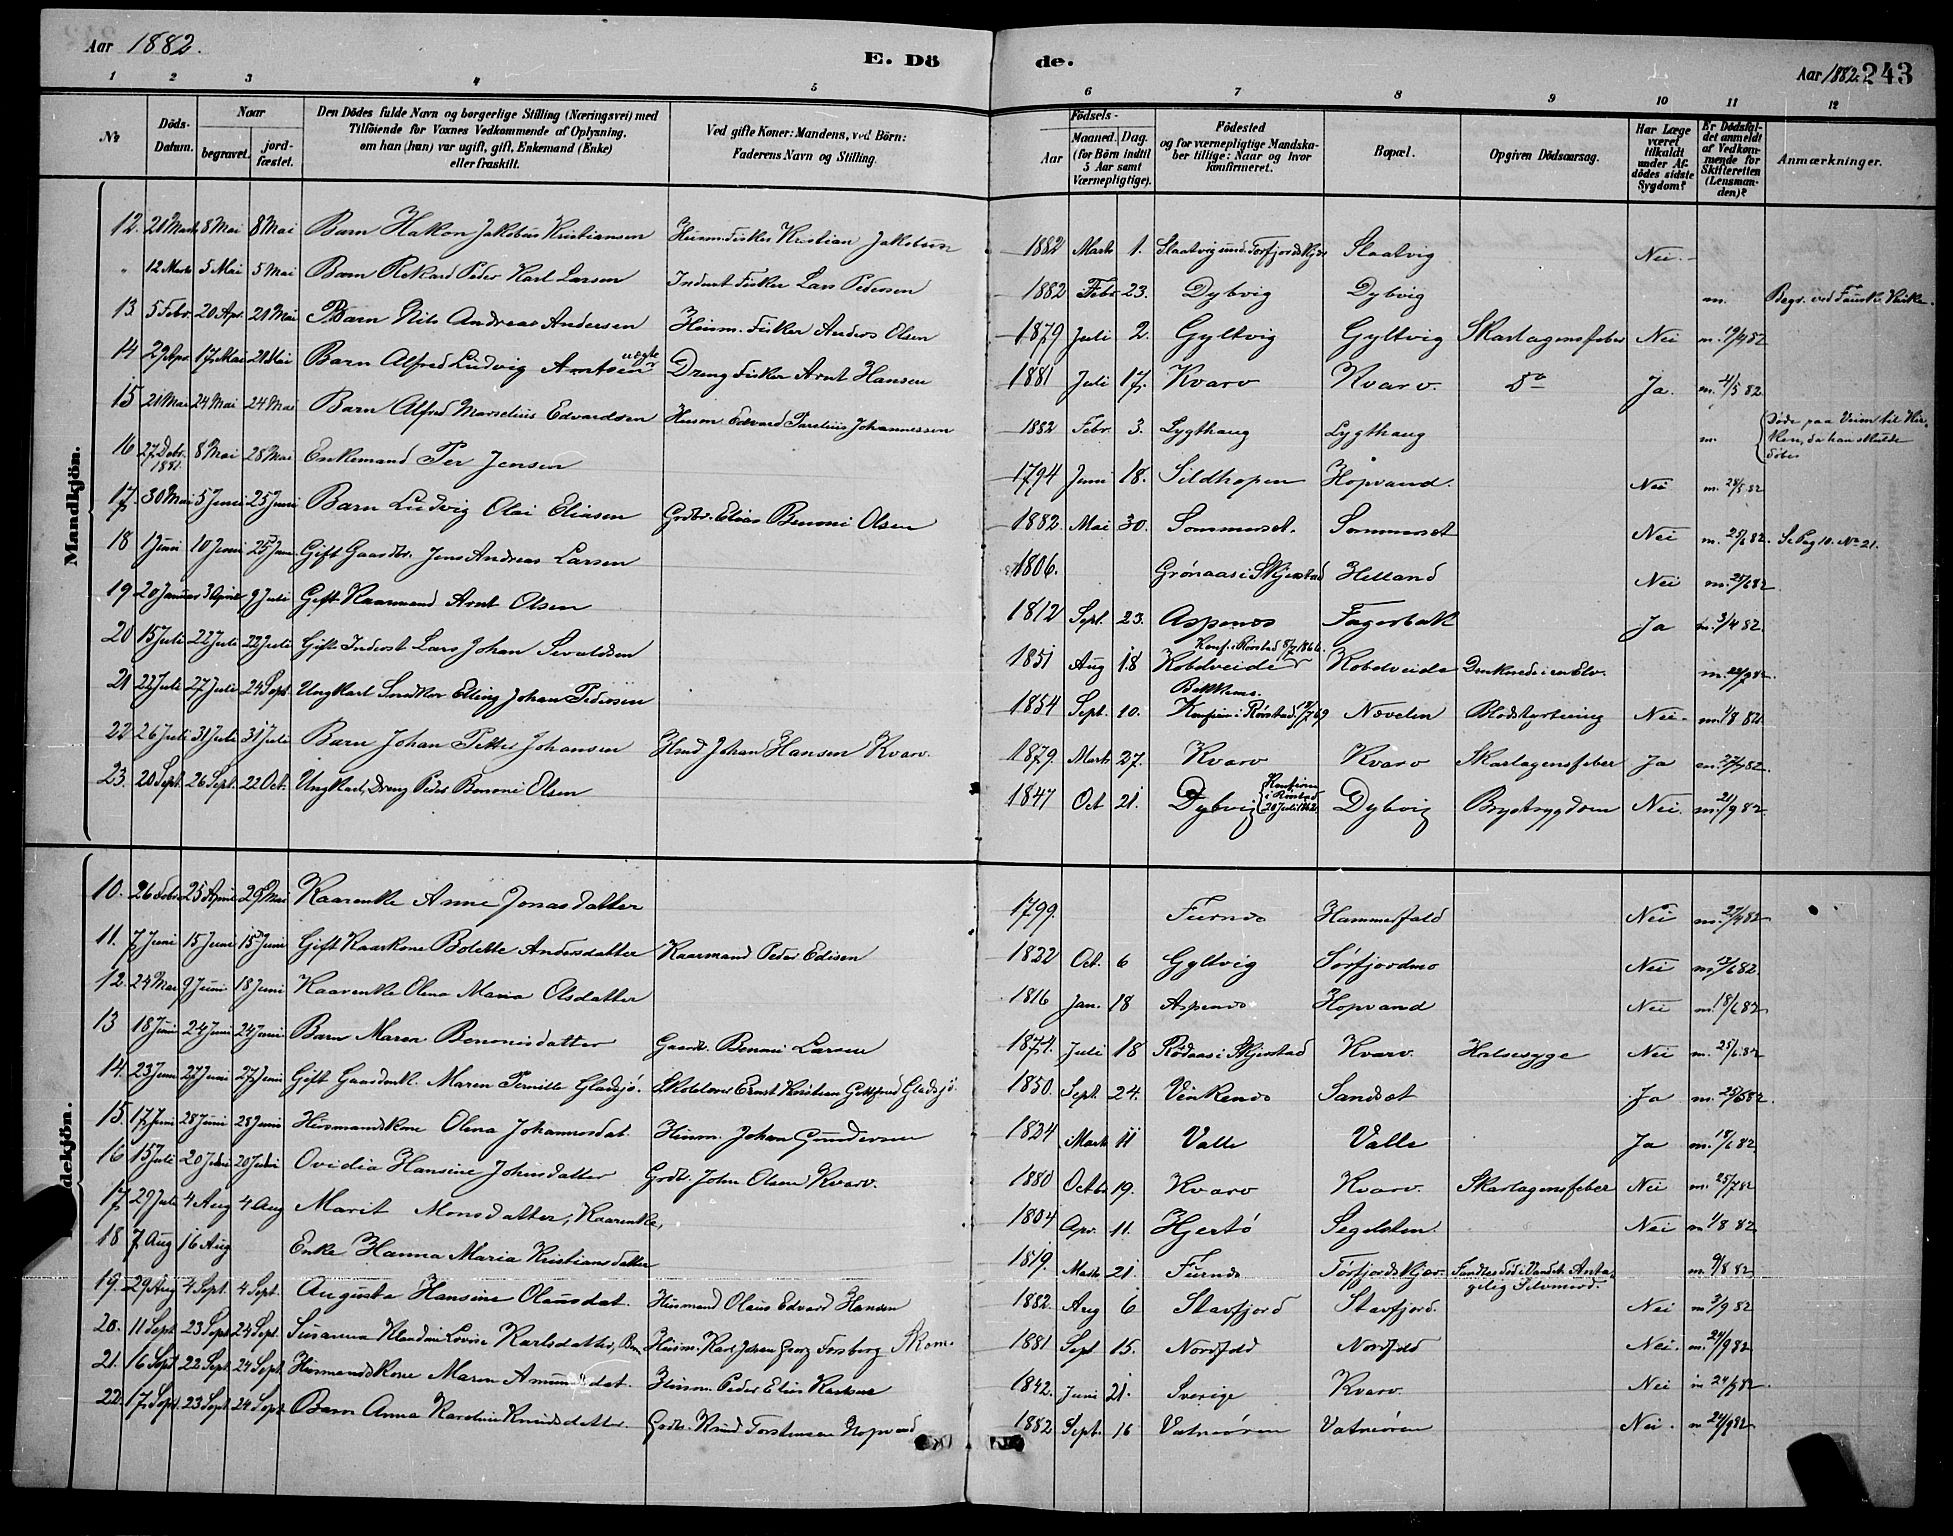 Aar 1882.
E. Dö
de.
Aar 1882. 243
1 2 3 4 5 6 7 8 9 10 11 12
No
Döds-
Datum.
Naar
begravet.
jord-
fæstet.
Den Dödes fulde Navn og borgerlige Stilling (Næringsvei) med
Tilföiende for Voxnes Vedkommende af Oplysning,
om han (hun) var ugift, gift, Enkemand (Enke)
eller fraskilt.
Ved gifte Koner: Mandens, ved Börn:
Faderens Navn og Stilling.
Födsels-
Aar
Maaned. Dag.
(for Börn indtil
5 Aar samt
Værnepligtige).
Födested
og for værnepligtige Mandska-
ber tillige: Naar og hvor
konfirmeret.
Bopæl.
Opgiven Dödsaarsag.
Har Læge
været
tilkaldt
under Af-
dödes sidste
Sygdom?
Er Dödsfal-
det anmeldt
af Vedkom-
mende for
Skifteretten
(Lensman-
den)?
Anmærkninger.
Mandkjön.
12. 21 Marts 8 Mai 8 Mai Barn Hakon Jakobus Kristiansen Husm. Fisker Kristian Jakobsen 1882 Marts 1. Slaatvig Slaatvig Nei.
" 12 Marts 5 Mai 5 Mai Barn Rikard Peder Karl Larsen Inderst Fisker Lars Pedersen 1882 Febr 23. Dybvig Dybvig m. Begr. ved Fauske Kirke.
13 5 Febr. 20 Apr. 21 Mai Barn Nils Andreas Andersen Husm. Fisker Anders Olsen 1879 Juli 2. Gyltvig Gyltvig Skarlagensfeber Nei m. 19/4 82
14 29 Apr. 17 Mai 21 Mai Barn Alfred Ludvig Arntsen uægte Dreng Fisker Arnt Hansen 1881 Juli 17. Kvarv Kvarv. Do Ja. m. 4/5 82.
15 21 Mai 24 Mai 24 Mai Barn Alfred Marselius Edvardsen Husm Edvard Parelius Johannessen 1882 Febr. 3. Lygthaug Lygthaug m. Døde paa Veien til Kir-
ken, da han skulde
døbes
16 27 Debr. 1881. 8 Mai 28 Mai Enkemand Per Jensen 1794 Juni 18. Sildhopen Hopvand. Nei m. 28/5 82
17. 30 Mai 5 Juni 25 Juni Barn Ludvig Olai Eliasen Grdbr. Elias Benoni Olsen 1882. Mai 30. Sommerset. Sommerset Nei m. 25/6 82. Se Pag 10. No 21.
18 1 Juni 10 Juni 25 Juni Gift Gaardbr. Jens Andreas Larsen 1806. Grønaas i Skjerstad Helland Nei m. 25/6 82
19 20 Januar 3 April 9 Juli Gift Kaarmand Arnt Olsen 1812 Sept. 23. Aspenes Fagerbak Ja m. 3/4 82.
20 15 Juli 22 Juli 22 Juli Gift Inderst Lars Johan Sevaldsen 1851 Aug 18 Konf. i Rørstad 8/7 1866 Kobelveide Kobelveide Druknede i en Elv. m. 22/7 82.
21 22 Juli 27 Juli 24 Sept. Ungkarl Snedker Elling Johan Pedersen 1854 Sept. 10. Konfirm. i Rørstad Nævelen Blodstyrtning Nei. m. 1/8 82
22 26 Juli 31 Juli 31 Juli Barn Johan Petter Johansen Hmd Johan Hansen Kvarv. 1879. Marts 27. Kvarv Kvarv Skarlagensfeber Ja m. 27/7 82.
23. 20 Sept. 26 Sept. 22 Oct. Ungkarl, Dreng Peder Benoni Olsen 1847 Oct 21. Dybvig Konfirm
i Rørstad
20 Juli 1862 Dybvig Brystsygdom Nei. m. 21/9 82
Kvindekjön.
10. 26 Febr. 25 April 29 Mai Kaarenke Anne Jonasdatter 1799. Furnes Hammerfald Nei m. 25/4 82
11. 7 Juni 15 Juni 15 Juni Gift Kaarkone Bolette Andersdatter Kaarmand Peder Edisen 1822 Oct. 6 Gyltvig Sørfjordmo Nei m. 15/6 82.
12. 24 Mai 9 Juni 18 Juni Kaarenke Olena Maria Olsdatter 1816 Jan. 18 Aspenes Hopvand Nei m. 18/6 82
13 18 Juni 24 Juni 24 Juni Barn Maren Benonisdatter Gaardbr. Benoni Larsen 1874. Juli 18 Rødaas i Skjerstad Kvarv. Halssyge Nei m. 25/6 82
14. 23 Juni 27 Juni 27 Juni Gift Gaardmk. Maren Pernille Gladsjö. Skolelærer Ernst Kristian Gottfred Gladsjö. 1850. Sept. 24. Vinkenes Sandset Ja m. 25/6 82.
15. 17 Juni 28 Juni 28 Juni Husmandskone Olena Johannesdat. Husm. Johan Gundersen 1824 Marts 11 Valle Valle Ja m. 18/6 82
16 15 Juli 20 Juli 20 Juli Ovidia Hansine Johnsdatter Grdbr. John Olsen Kvarv. 1880 Octbr 19. Kvarv Kvarv. Skarlagensfeber Nei m. 25/7 82
17. 29 Juli 4 Aug 4 Aug Marit Monsdatter, Kaarenke, 1804 Apr. 11. Hjertö Segelsten. Nei m 1/8 82
18 7 Aug 16 Aug Enke Hanna Maria Kristiansdatter 1819. Marts 21. Furnes Tørfjordskjær Fandtes død i Vandet. Anta-
gelig Selvmord. m. 9/8 82
19. 29 Aug 4 Sept. 4 Sept. Augusta Hansine Olausdat. Husmand Olaus Edvard Hansen 1882. Aug 6 Stavfjord Stavfjord. Nei m 3/9 82
20. 11 Sept. 23 Sept 24 Sept. Susanna Klaudine Lovise Karlsdatter, Barn Husm. Karl Johan Georg Forsberg 1881 Sept 15. Nordfold Nordfold Nei. m. 24/9 82
21. 16 Sept 22 Sept. 24 Sept. Husmandskone Maren Amundsdat. Husm. Peder Elias 1842. Juni 21. Sverige Kvarv. Nei m 24/9 82.
22. 17 Sept. 23 Sept. 24 Sept. Barn Anna Karoline Knudsdatter Grdbr. Knud Torstensen Hopvand 1882 Sept. 16 Vatnøren Vatnøren Nei. m 24/9 82